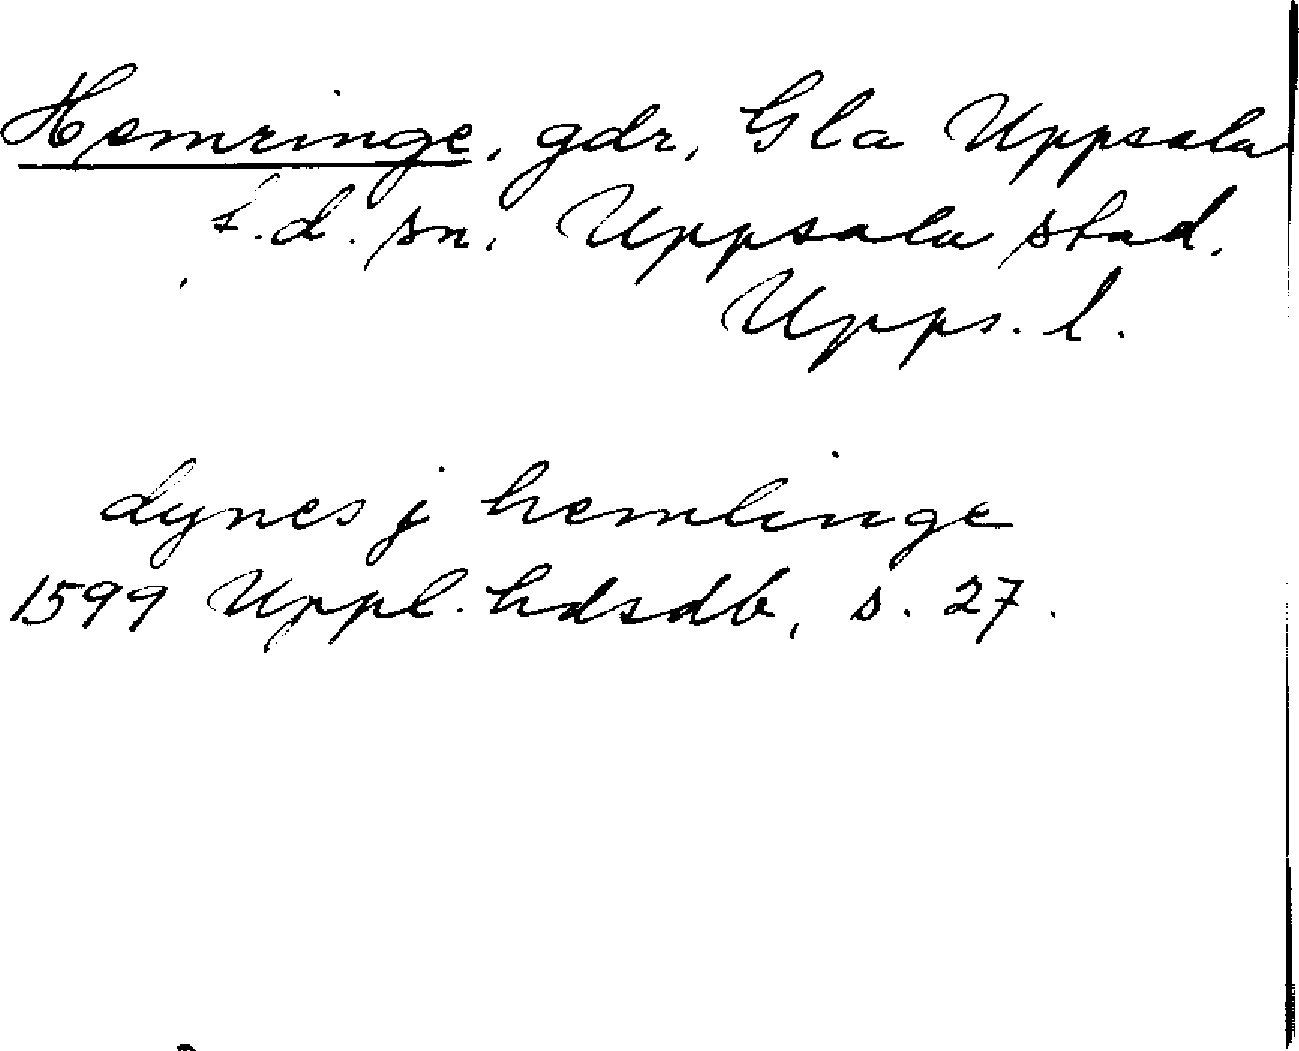 Hemringe, gdr, Gla Uppsala
f.d. sn. Uppsala stad.
Upps. l.
dynes j hemlinge
1599 Uppl. hdsdb, s. 27.